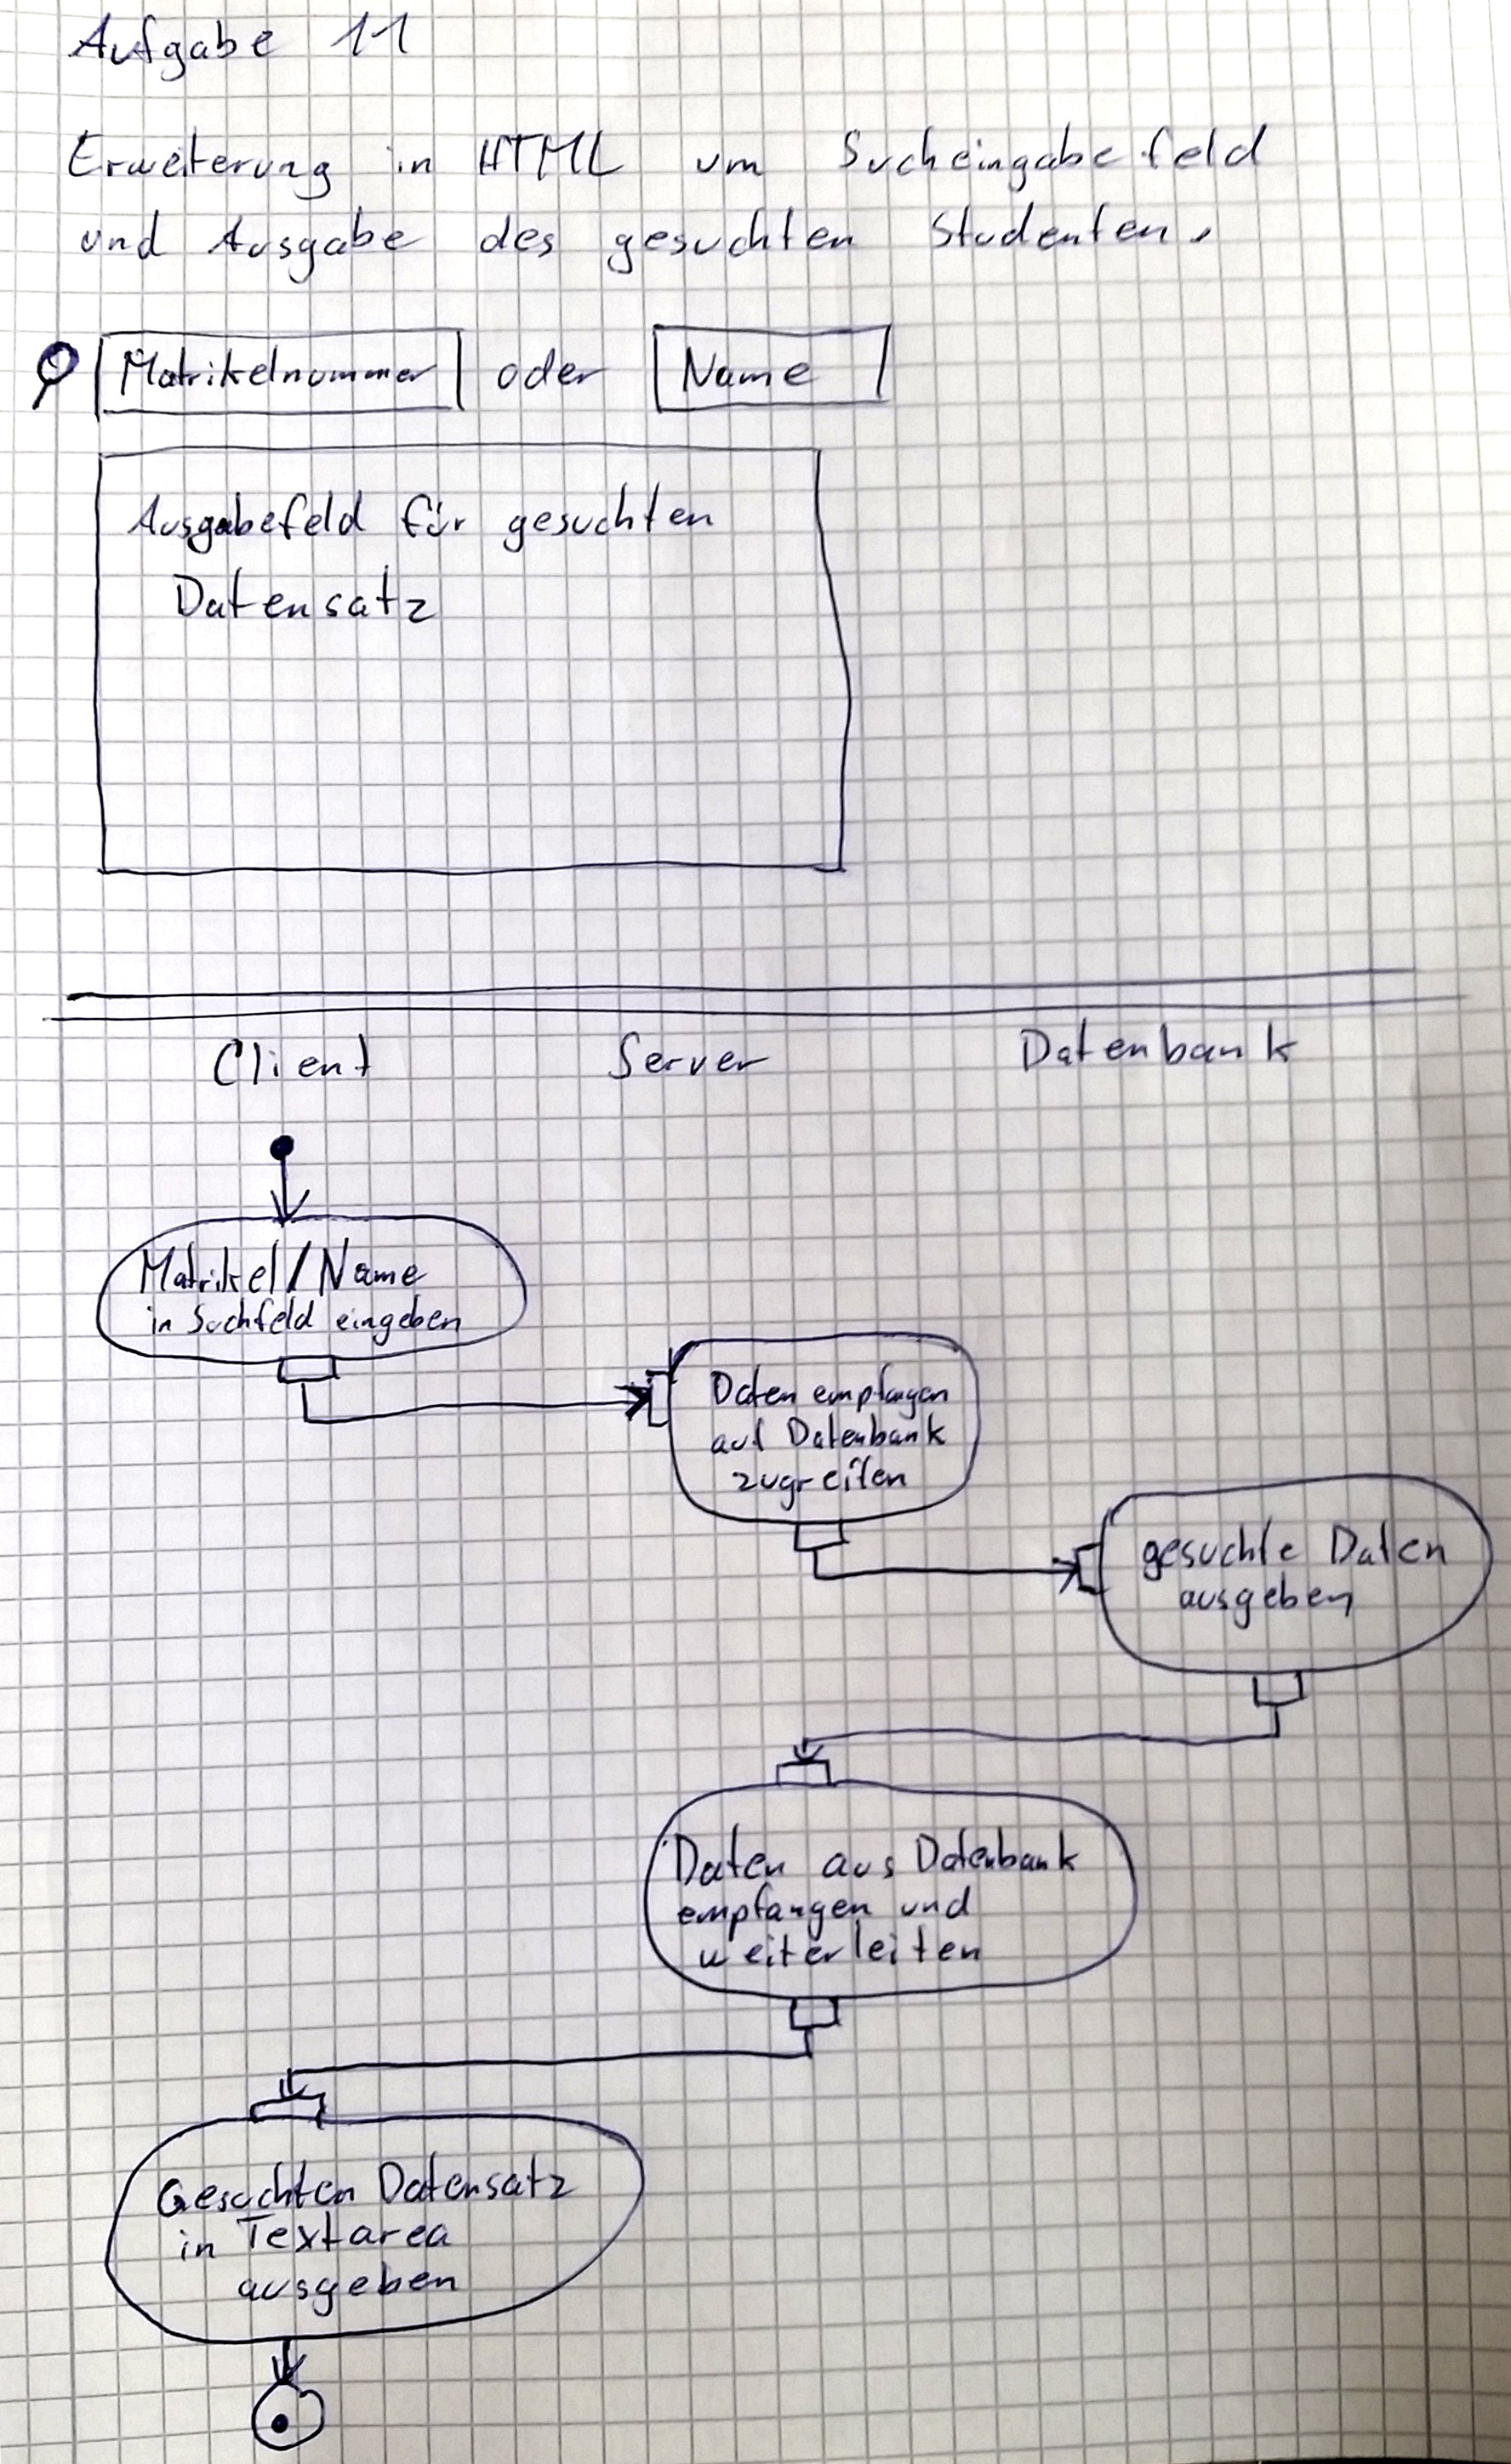 Aufgabe 11
Erweiterung in HTML um Sucheingabefeld
und Ausgabe des gesuchten Studenten.
Matrikelnummer oder Name
Ausgabefeld für gesuchten
Datensatz
Client Server Datenbank
Matrikel/Name
in Suchfeld eingeben
Daten empfangen
auf Datenbank
zugreifen
gesuchte Daten
ausgeben
Daten aus Datenbank
empfangen und
weiterleiten
Gesuchten Datensatz
in Textarea
ausgeben